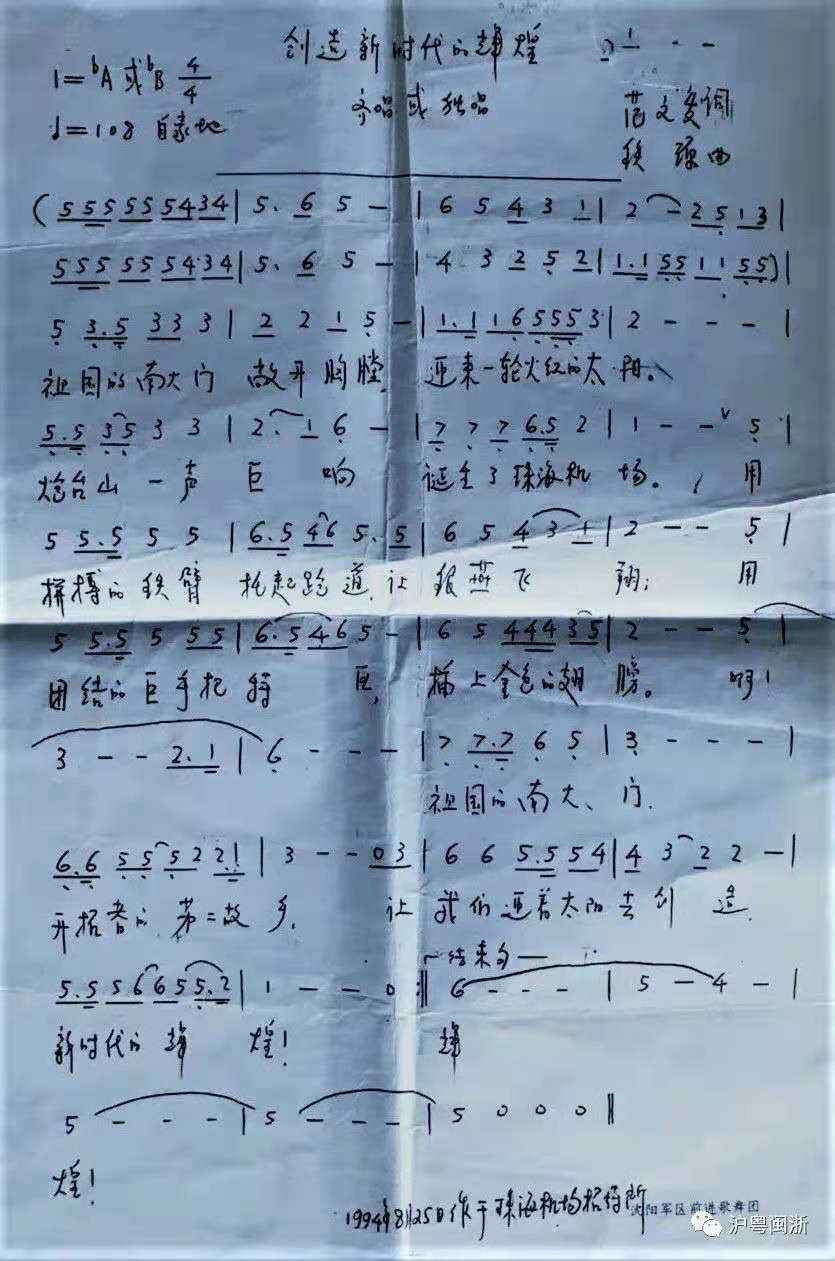 创造新时代的辉煌
1=ᵇA或ᵇB 4/4
齐唱或独唱
♩=108 自豪地
范文发词
铁源曲
(5 5 5 5 5 5 4 3 4 | 5. 6 5 - | 6 5 4 3 1 | 2 - 2 5 1 3 |
5 5 5 5 5 5 4 3 4 | 5. 6 5 - | 4 3 2 5 2 | 1.1 5 5 1 1 5 5) |
5 3.5 3 3 3 | 2 2 1 5 - | 1.1 1 6 5 5 5 3 | 2 - - - |
祖国的南大门 敞开胸膛, 迎来一轮火红的太阳。
5.5 3 5 3 3 | 2. 1 6 - | 7 7 7 6.5 2 | 1 - - ᵛ 5 |
炮台山一声巨响 诞生了珠海机场。, 用
5 5.5 5 5 | 6.5 4 6 5. 5 | 6 5 4 3 1 | 2 - - 5 |
拼搏的铁臂 托起跑道,让银燕飞翔; 用
5 5.5 5 5 5 | 6.5 4 6 5 - | 6 5 4 4 4 3 5 | 2 - - 5 |
团结的巨手把特区, 插上金色的翅膀。 啊!
3 - - 2.1 | 6 - - - | 7 7.7 6 5 | 3 - - - |
祖国的南大、门,
6.6 5 5 5 2 2 1 | 3 - - 0 3 | 6 6 5.5 5 4 | 4 3 2 2 - |
开拓者的第二故乡, 让我们迎着太阳去创造,
结束句
5.5 5 6 6 5 5.2 | 1 - - 0 :‖ 6 - - - | 5 - 4 - |
新时代的辉煌! 辉
5 - - - | 5 - - - | 5 0 0 0 ‖
煌!
1994年8月25日作于珠海机场招待所
沈阳军区前进歌舞团
沪粤闽浙